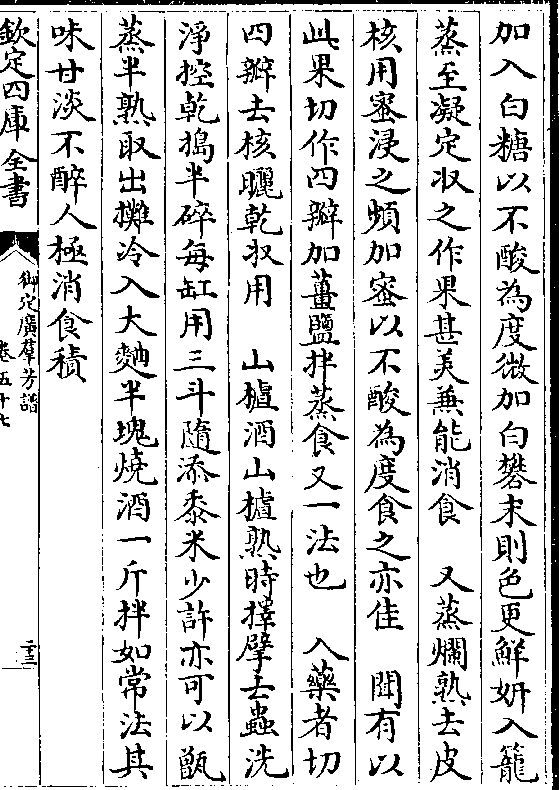 加入白糖以不酸為度微加白礬末則色更鮮妍入籠
蒸至凝定収之作果甚美兼能消食　又蒸爛熟去皮
核用蜜浸之頻加蜜以不酸為度食之亦佳　聞有以
此果切作四瓣加薑鹽拌蒸食又一法也　入藥者切
四瓣去核曬乾収用　山樝酒山樝熟時擇擘去蟲洗
淨控乾搗半碎每缸用三斗隨添黍米少許亦可以甑
蒸半熟取出攤冷入大麯半塊燒酒一斤拌如常法其
味甘淡不醉人極消食積
欽定四庫全書
御定廣羣芳譜
卷五十七
二十三